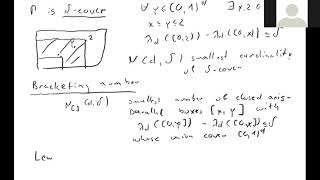 Γ is δ-cover ∀ y∈[0,1]^d ∃ x,z ∈
x ≤ y ≤ z
λ_d([0,z)) - λ_d([0,x)) ≤ δ
N(d,δ) smallest cardinality
of δ-cover
Bracketing number
N_[](d,δ) smallest number of closed axis-
parallel boxes [x,y] with
λ_d([0,y)) - λ_d([0,x)) ≤ δ
whose union covers [0,1]^d
Lem